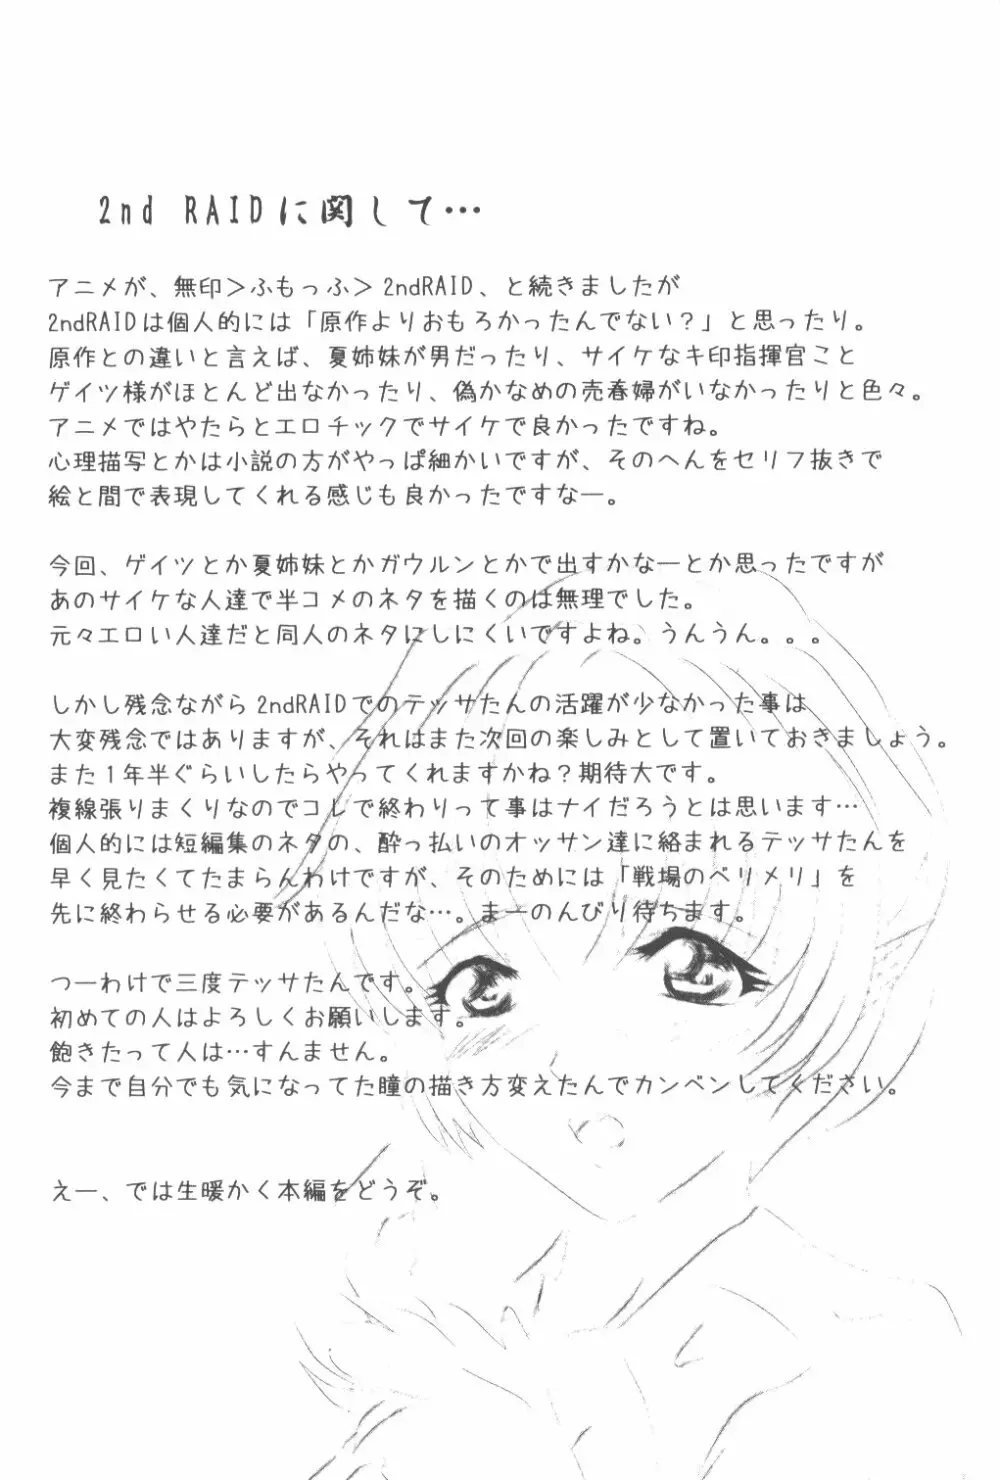 2nd RAIDに関して…
アニメが、無印＞ふもっふ＞2ndRAID、と続きましたが
2ndRAIDは個人的には「原作よりおもろかったんでない？」と思ったり。
原作との違いと言えば、夏姉妹が男だったり、サイケなキ印指揮官こと
ゲイツ様がほとんど出なかったり、偽かなめの売春婦がいなかったりと色々。
アニメではやたらとエロチックでサイケで良かったですね。
心理描写とかは小説の方がやっぱ細かいですが、そのへんをセリフ抜きで
絵と間で表現してくれる感じも良かったですなー。
今回、ゲイツとか夏姉妹とかガウルンとかで出すかなーとか思ったですが
あのサイケな人達で半コメのネタを描くのは無理でした。
元々エロい人達だと同人のネタにしにくいですよね。うんうん。。。
しかし残念ながら2ndRAIDでのテッサたんの活躍が少なかった事は
大変残念ではありますが、それはまた次回の楽しみとして置いておきましょう。
また１年半ぐらいしたらやってくれますかね？期待大です。
複線張りまくりなのでコレで終わりって事はナイだろうとは思います…
個人的には短編集のネタの、酔っ払いのオッサン達に絡まれるテッサたんを
早く見たくてたまらんわけですが、そのためには「戦場のベリメリ」を
先に終わらせる必要があるんだな…。まーのんびり待ちます。
つーわけで三度テッサたんです。
初めての人はよろしくお願いします。
飽きたって人は…すんません。
今まで自分でも気になってた瞳の描き方変えたんでカンベンしてください。
えー、では生暖かく本編をどうぞ。